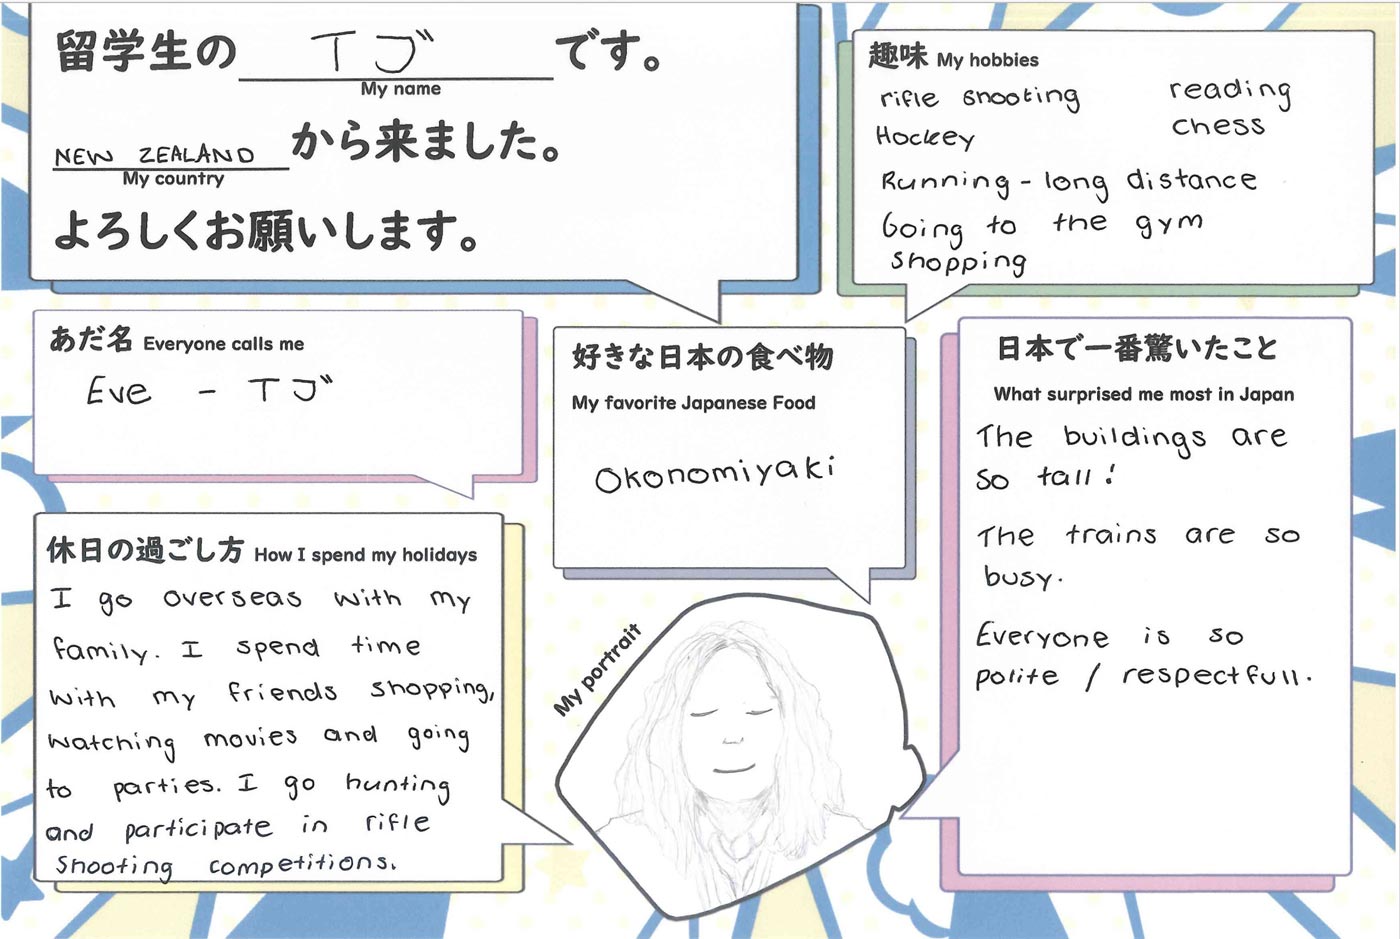 留学生の TJ゛ です。
My name
NEW ZEALAND から来ました。
My country
よろしくお願いします。
趣味 My hobbies
rifle shooting reading
Hockey chess
Running - long distance
Going to the gym
shopping
あだ名 Everyone calls me
Eve - TJ゛
好きな日本の食べ物
My favorite Japanese Food
Okonomiyaki
日本で一番驚いたこと
What surprised me most in Japan
The buildings are
so tall!
The trains are so
busy.
Everyone is so
polite / respectfull.
休日の過ごし方 How I spend my holidays
I go overseas with my
family. I spend time
with my friends shopping,
watching movies and going
to parties. I go hunting
and participate in rifle
shooting competitions.
My portrait